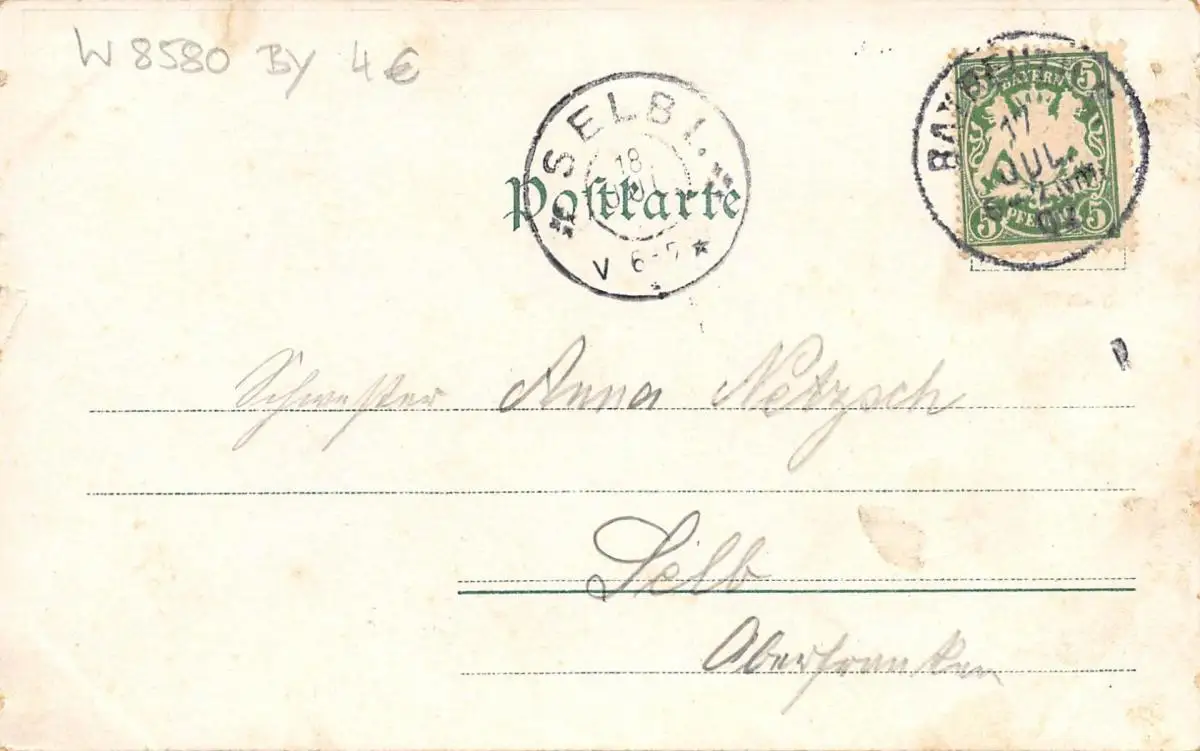 W 8580 BY 4 €
SELB I.
18
V 6-7
Postkarte
BAYREUTH
17
JUL.
02
5 BAYERN 5
5 5
Schwester Anna Netzsch
Selb
Oberfranken